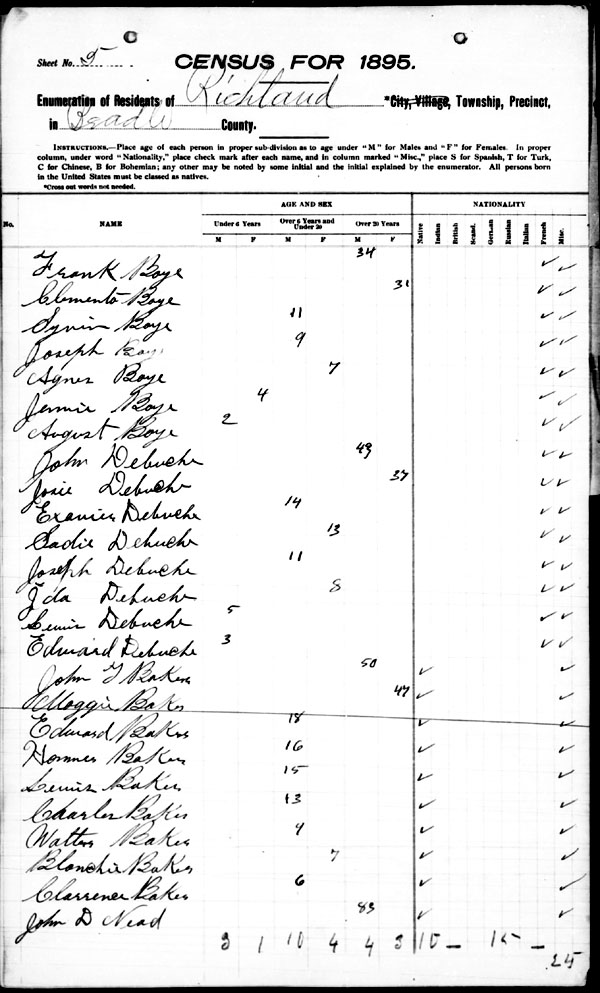 Sheet No. 5
CENSUS FOR 1895.
Enumeration of Residents of Richland *City, Village, Township, Precinct,
in Beadle County.
INSTRUCTIONS.—Place age of each person in proper sub-division as to age under "M" for Males and "F" for Females. In proper
column, under word "Nationality," place check mark after each name, and in column marked "Misc.," place S for Spanish, T for Turk,
C for Chinese, B for Bohemian; any other may be noted by some initial and the initial explained by the enumerator. All persons born
in the United States must be classed as natives.
*Cross out words not needed.
AGE AND SEX NATIONALITY
No. NAME Under 6 Years Over 6 Years and Under 20 Over 20 Years Native Indian British Scand. German Russian Italian French Misc.
M F M F M F
Frank Boye 34 ✓ ✓
Clemento Boye 31 ✓ ✓
Boye 11 ✓ ✓
Joseph Boye 9 ✓ ✓
Agnes Boye 7 ✓ ✓
Jennie Boye 4 ✓ ✓
August Boye 2 ✓ ✓
John Debuche 49 ✓ ✓
Josie Debuche 37 ✓ ✓
Debuche 14 ✓ ✓
Sadie Debuche 13 ✓ ✓
Joseph Debuche 11 ✓ ✓
Ida Debuche 8 ✓ ✓
Lewis Debuche 5 ✓ ✓
Edward Debuche 3 ✓ ✓
John Baker 50 ✓ ✓
Maggie Baker 47 ✓ ✓
Edward Baker 18 ✓ ✓
Homner Baker 16 ✓ ✓
Lewis Baker 15 ✓ ✓
Charles Baker 13 ✓ ✓
Walter Baker 9 ✓ ✓
Blanchie Baker 7 ✓ ✓
Clarrence Baker 6 ✓ ✓
John D Nead 83 ✓ ✓
3 1 10 4 4 3 10 – 15 –
25